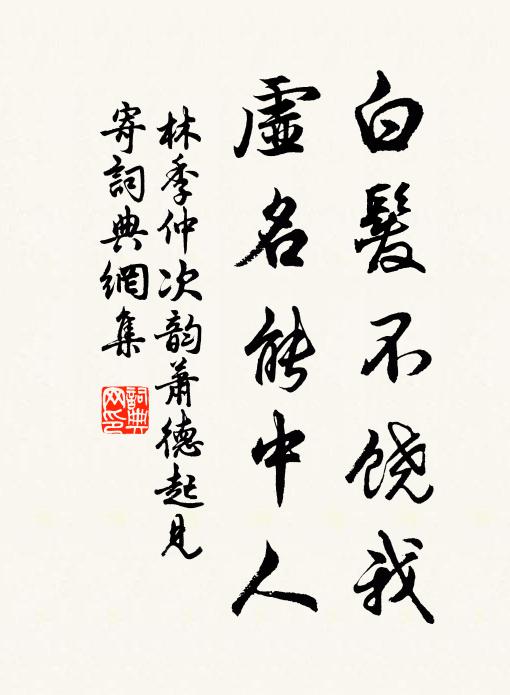 白髮不饒我
虛名能中人
林季仲次韵蕭德起見
寄詞典網集
詞典
网印